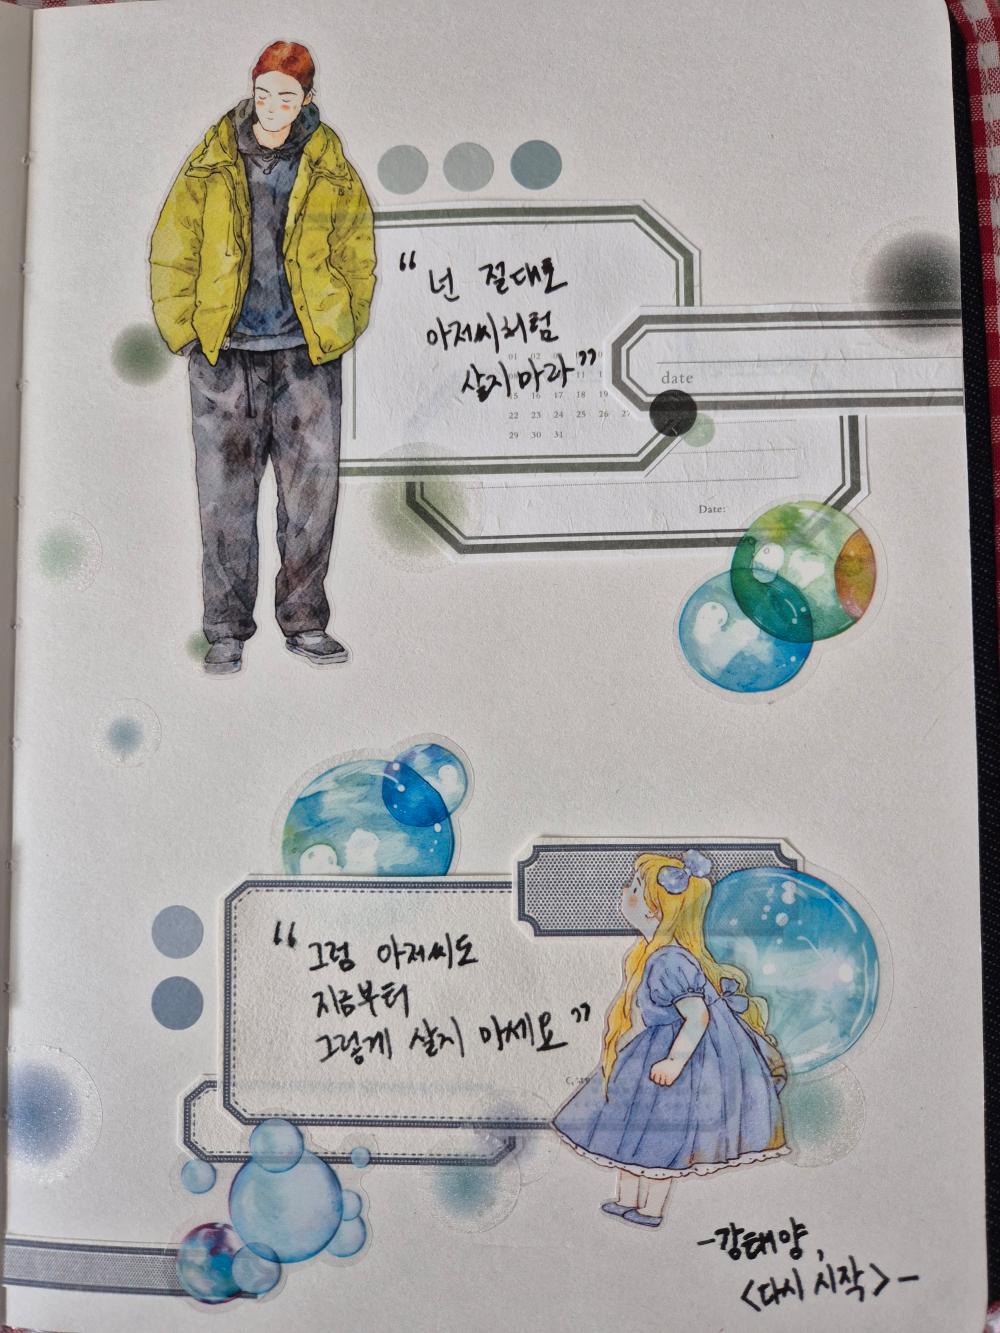 “넌 절대로
아저씨처럼
살지마라”
01 02
11
15 16 17 18 19
22 23 24 25 26 27
29 30 31
date
Date:
“그럼 아저씨도
지금부터
그렇게 살지 마세요”
-강태양,
<다시 시작>-